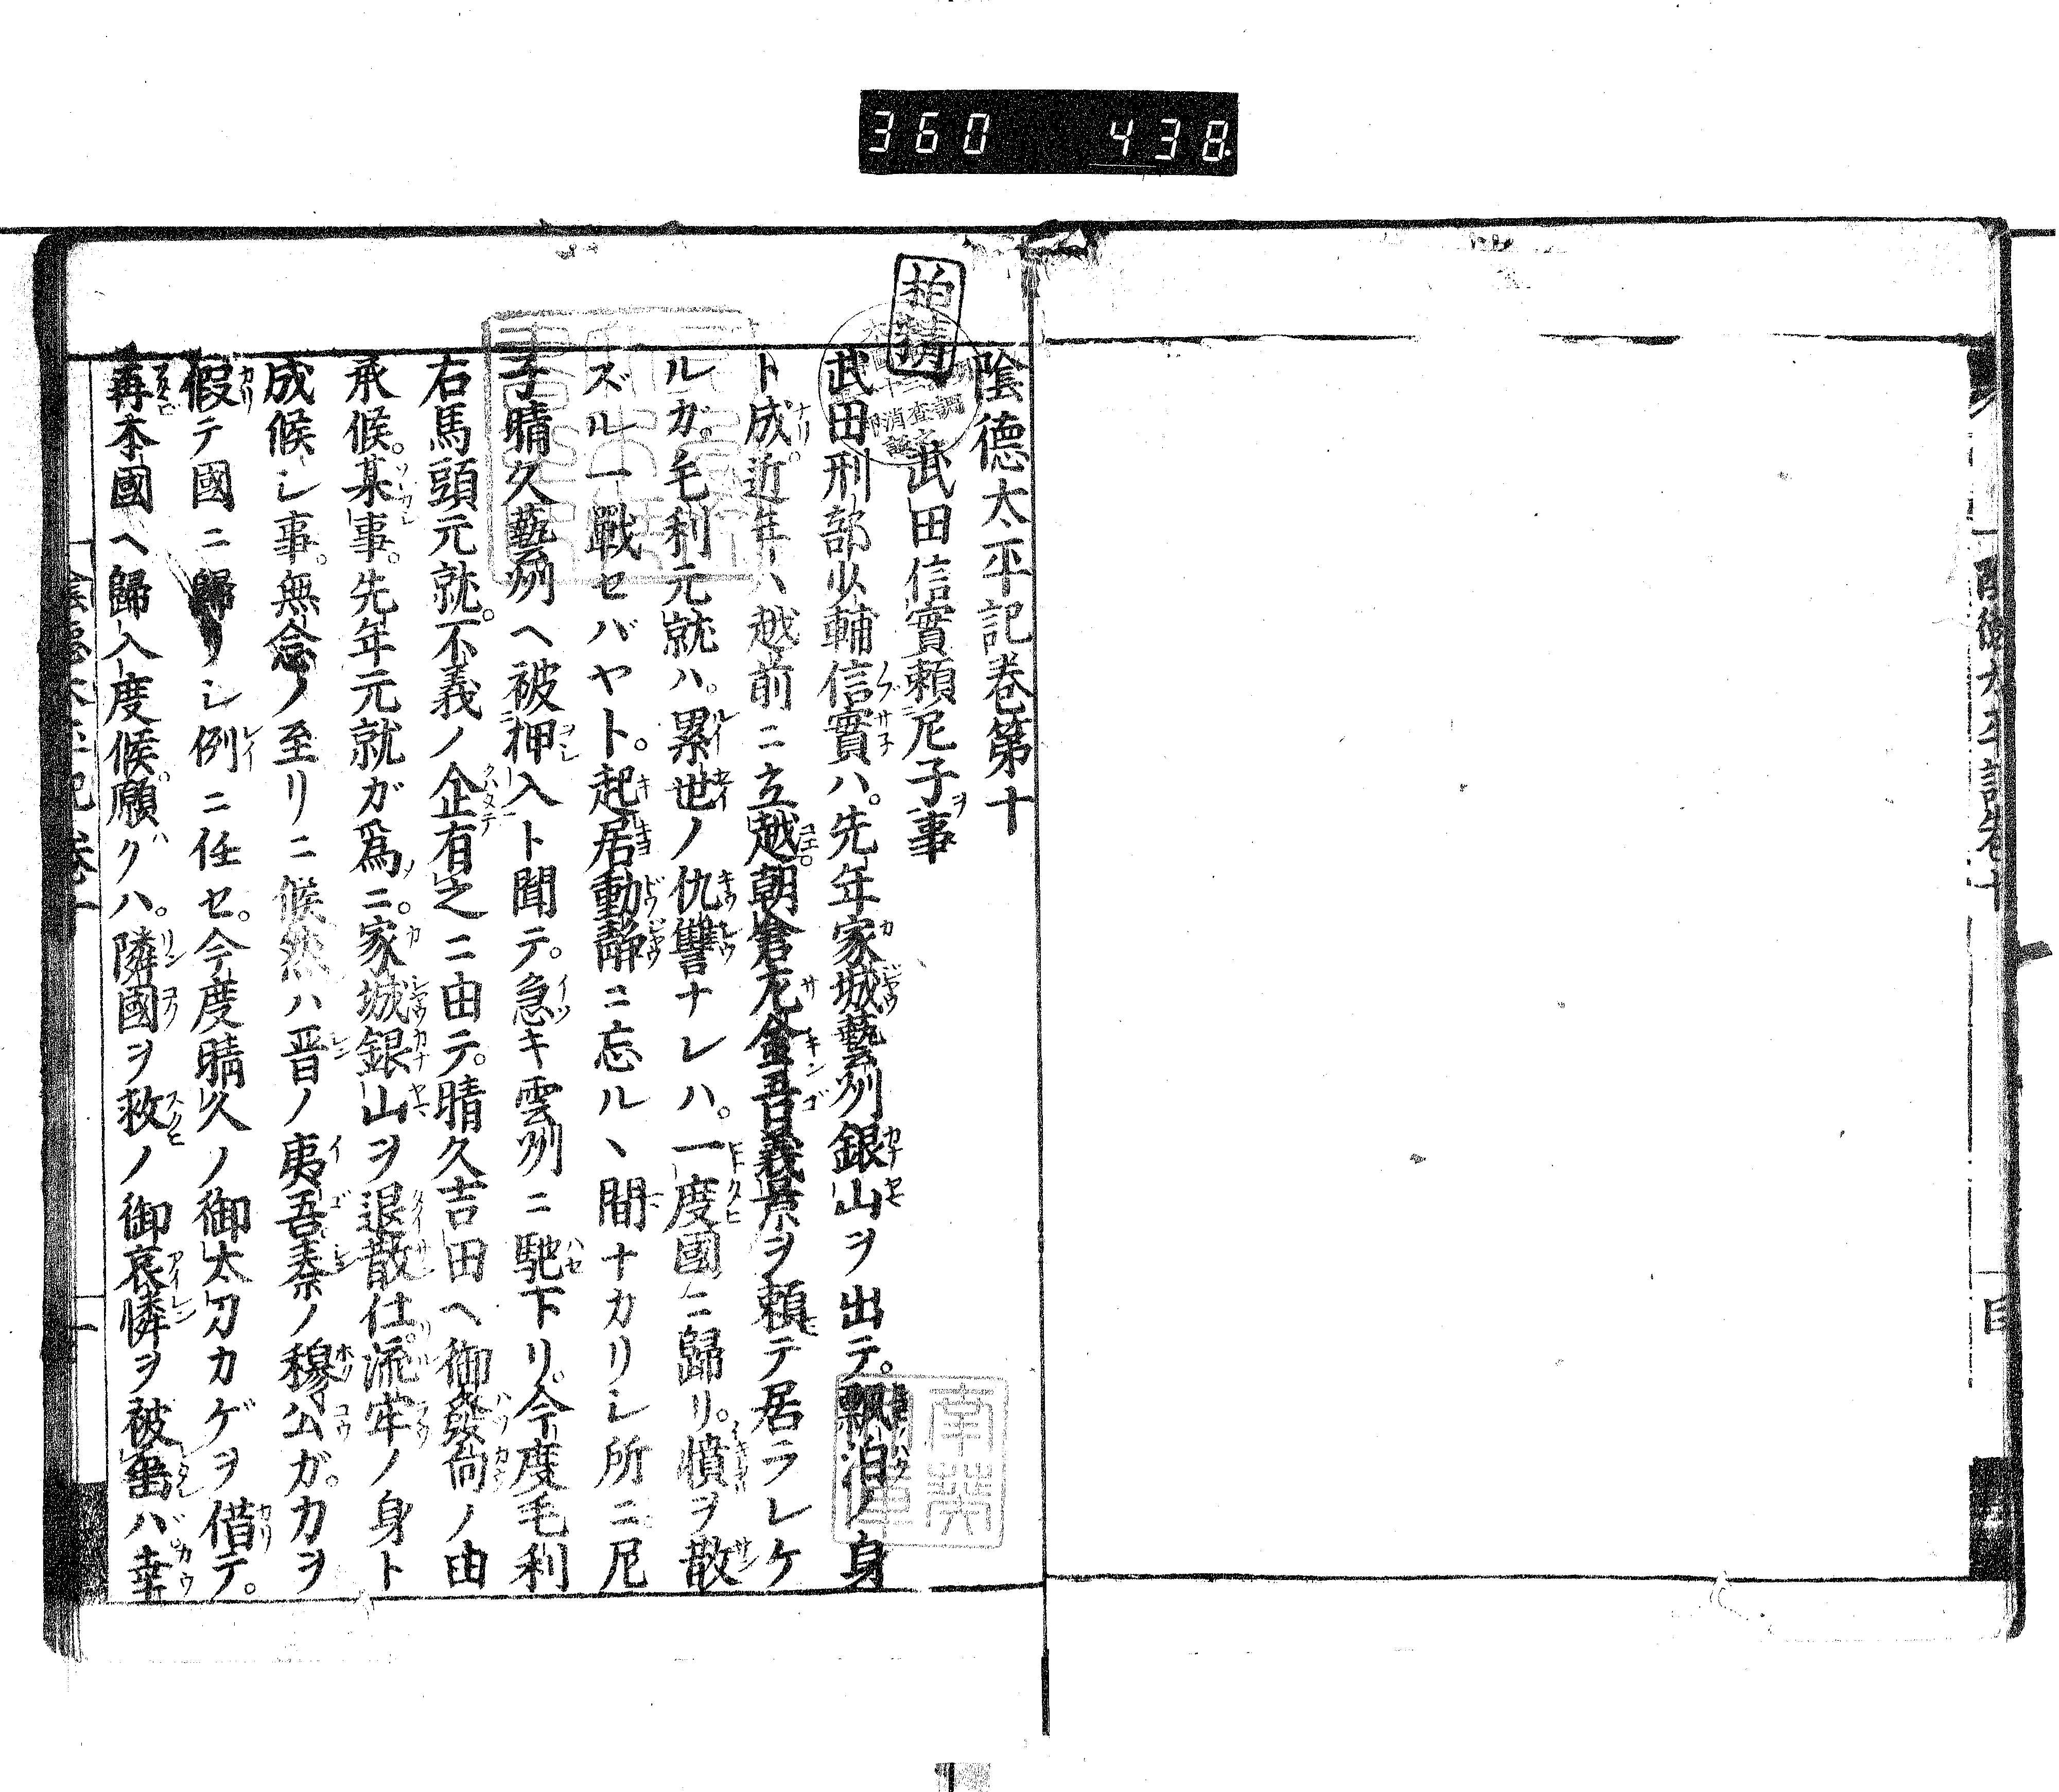 360 438
陰德太平記卷第十
武田信實頼尼子事
武田刑部少輔信實ハ。先年家城藝州銀山ヲ出テ。飄泊ノ身
ト成。近年ハ越前ニ立越。朝倉左金吾義景ヲ頼テ居ラレケ
ルガ。毛利元就ハ。累世ノ仇讐ナレハ。一度國ニ歸リ。憤ヲ散
ズル一戰セバヤト。起居動靜ニ忘ルヽ間ナカリシ所ニ尼
子晴久藝州ヘ被押入ト聞テ。急キ雲州ニ馳下リ。今度毛利
右馬頭元就。不義ノ企有之ニ由テ。晴久吉田ヘ御發向ノ由
承候。某事。先年元就ガ爲ニ。家城銀山ヲ退散仕。流牢ノ身ト
成候シ事。無念ノ至リニ候然ハ晋ノ夷吾秦ノ穆公ガ。力ヲ
假テ國ニ歸リシ例ニ任セ。今度晴久ノ御太刀カゲヲ借テ。
再本國ヘ歸入度候。願クハ。隣國ヲ救ノ御哀憐ヲ被垂ハ幸